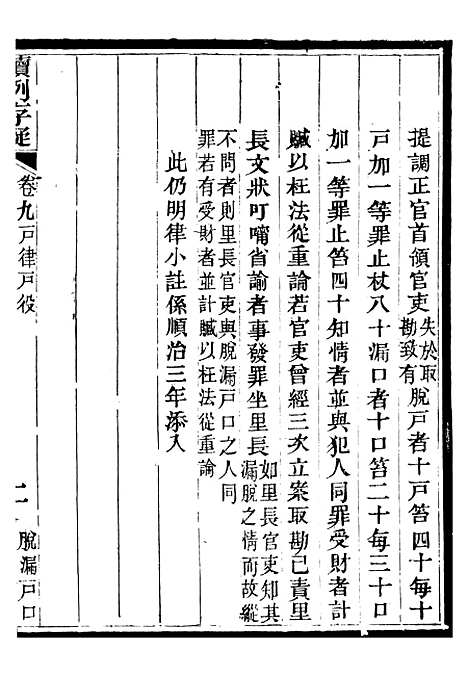 提調正官首領官吏失於取勘致有脫戸者十戸笞四十每十
戸加一等罪止杖八十漏口者十口笞二十每三十口
加一等罪止笞四十知情者並與犯人同罪受財者計
贓以枉法從重論若官吏曾經三次立案取勘已責里
長文狀叮嚀省諭者事發罪坐里長如里長官吏知其漏脫之情而故縱
不問者則里長官吏與脫漏戸口之人同
罪若有受財者並計贓以枉法從重論
此仍明律小註係順治三年添入
讀例存疑
卷九戸律戸役
二
脫漏戸口